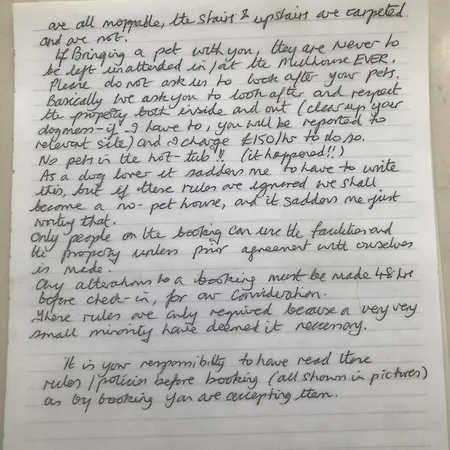 are all moppable, the stairs & upstairs are carpeted
and are not.
If Bringing a pet with you, they are never to
be left unattended in/at the Millhouse EVER.
Please do not ask us to look after your pets.
Basically we ask you to look after and respect
the property both inside and out (clear up your
dogmess-if I have to, you will be reported to
relevant site) and I charge £150/hr to do so.
No pets in the hot-tub!! (it happened!!)
As a dog lover it saddens me to have to write
this, but if these rules are ignored we shall
become a no-pet house, and it saddens me just
writing that.
Only people on the booking can use the facilities and
the property unless prior agreement with ourselves
is made.
Any alterations to a booking must be made 48hrs
before check-in, for our consideration.
These rules are only required because a very very
small minority have deemed it necessary.
It is your responsibilty to have read these
rules/policies before booking (all shown in pictures)
as by booking you are accepting them.